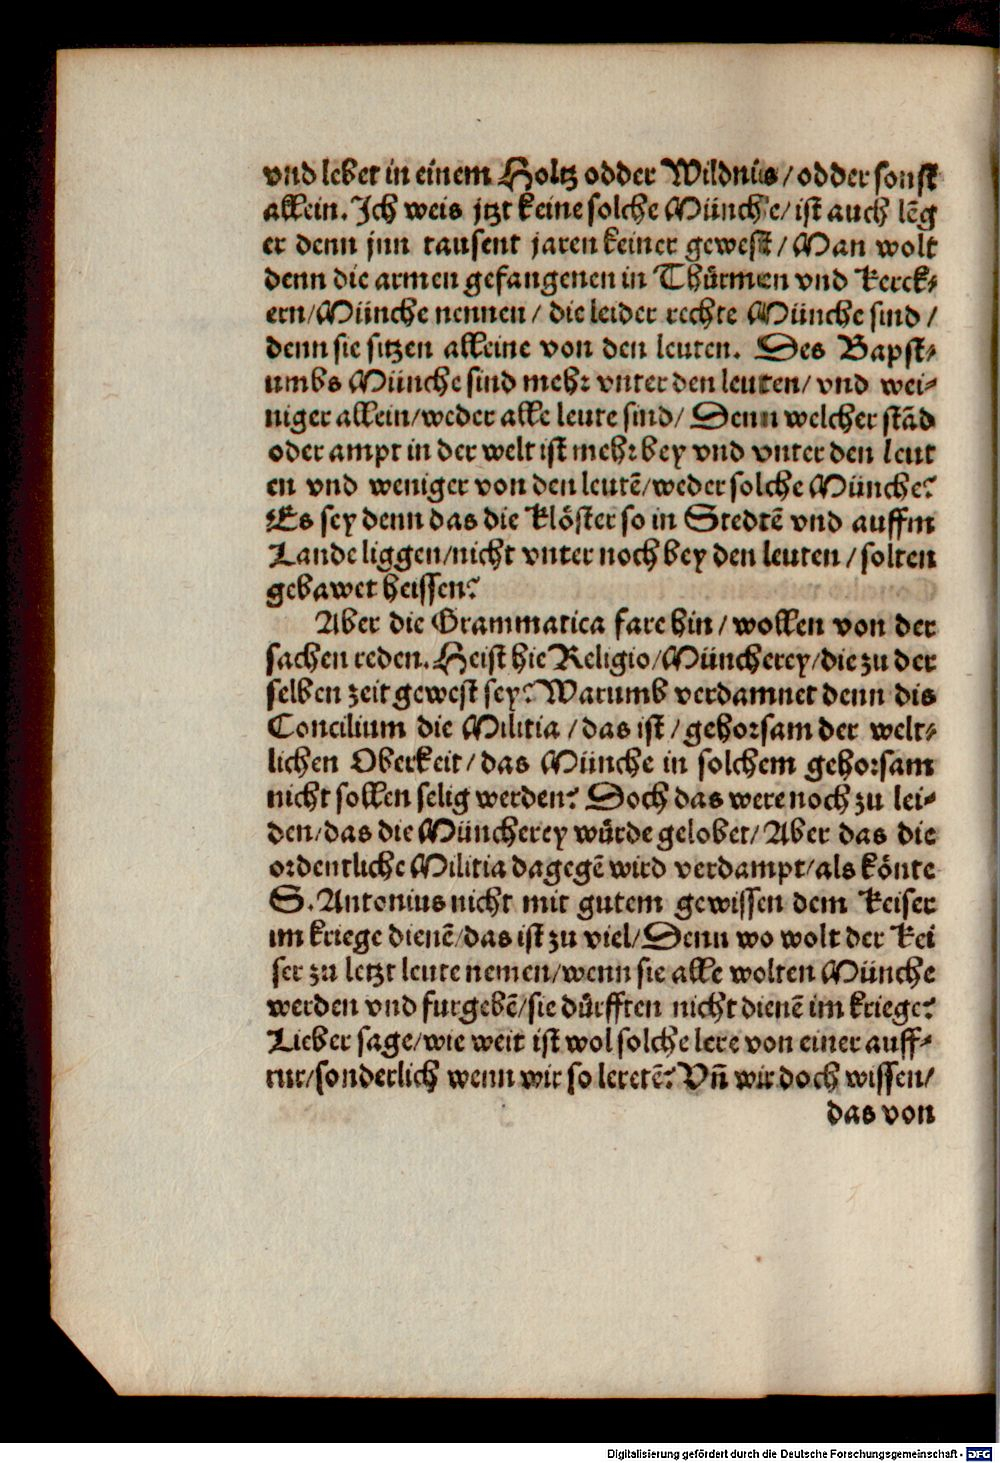 vnd lebet in einem Holtz odder Wildnüs / odder sonst
allein. Ich weis jtzt keine solche Münche / ist auch lẽg
er denn jnn tausent jaren keiner gewest / Man wolt
denn die armen gefangenen in Thürmen vnd Kerck⸗
ern / Münche nennen / die leider rechte Münche sind /
denn sie sitzen alleine von den leuten. Des Bapst⸗
umbs Münche sind mehr vnter den leuten / vnd wei⸗
niger allein / weder alle leute sind / Denn welcher stãd
oder ampt in der welt ist mehr bey vnd vnter den leut
en vnd weniger von den leutẽ / weder solche Münche?
Es sey denn das die Klöster so in Stedtẽ vnd auffm
Lande liggen / nicht vnter noch bey den leuten / solten
gebawet heissen?
Aber die Grammatica fare hin / wollen von der
sachen reden. Heist hie Religio / Müncherey / die zu der
selben zeit gewest sey? Warumb verdamnet denn dis
Concilium die Militia / das ist / gehorsam der welt⸗
lichen Oberkeit / das Münche in solchem gehorsam
nicht sollen selig werden? Doch das were noch zu lei⸗
den / das die Müncherey würde gelobet / Aber das die
ordentliche Militia dagegẽ wird verdampt / als könte
S. Antonius nicht mit gutem gewissen dem Keiser
im kriege dienẽ / das ist zu viel / Denn wo wolt der Kei
ser zu letzt leute nemen / wenn sie alle wolten Münche
werden vnd furgebẽ / sie dürfften nicht dienẽ im kriege?
Lieber sage / wie weit ist wol solche lere von einer auff⸗
rur / sonderlich wenn wir so leretẽ? Vñ wir doch wissen /
das von
Digitalisierung gefördert durch die Deutsche Forschungsgemeinschaft - DFG